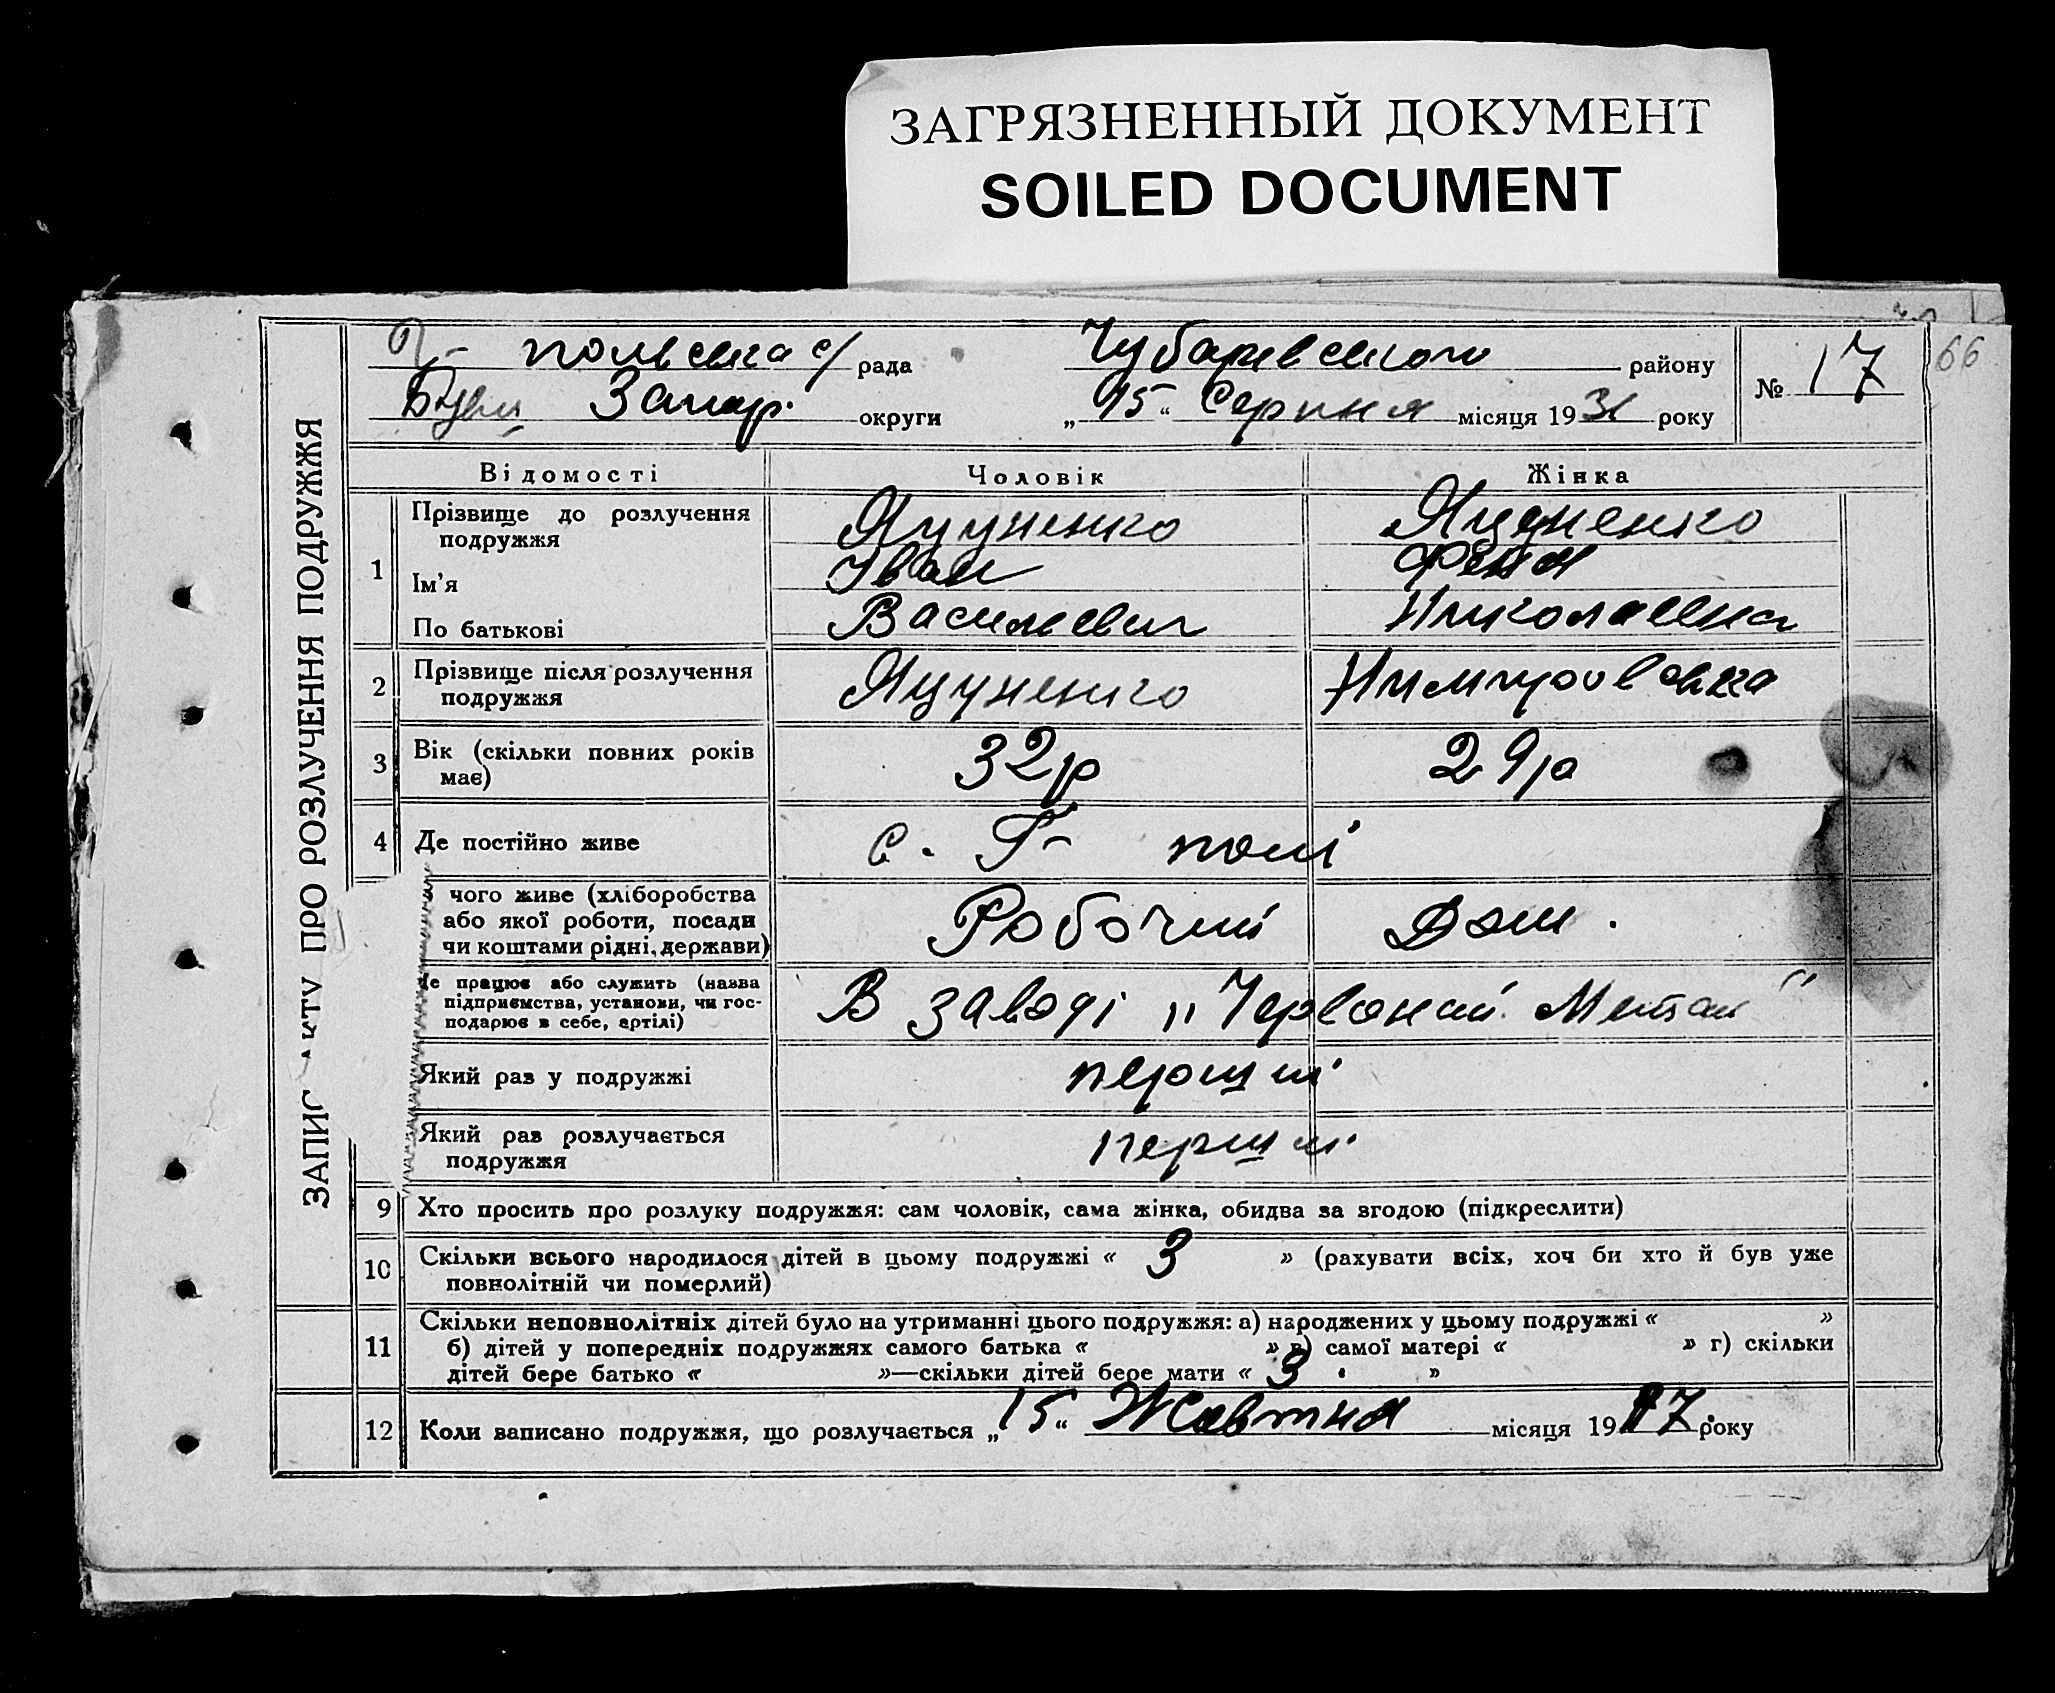 ЗАГРЯЗНЕННЫЙ ДОКУМЕНТ
SOILED DOCUMENT
польська с/ рада Чубарівського району № 17 66
Запор. округи „15“ Серпня місяця 1931 року
ЗАПИС АКТУ ПРО РОЗЛУЧЕННЯ ПОДРУЖЖЯ
Відомості Чоловік Жінка
1 Прізвище до розлучення подружжя Яцуненко Яцуненко
Ім'я Іван Феня
По батькові Василевич Николаевна
2 Прізвище після розлучення подружжя Яцуненко
3 Вік (скільки повних років має) 32р 29р
4 Де постійно живе с. Г- полі
чого живе (хліборобства або якої роботи, посади чи коштами рідні, держави) Робочий Дом.
е працює або служить (назва підприємства, установи, чи господарює в себе, артілі) В заводі „Червоний Метал"
Який раз у подружжі перший
Який раз розлучається подружжя перший
9 Хто просить про розлуку подружжя: сам чоловік, сама жінка, обидва за згодою (підкреслити)
10 Скільки всього народилося дітей в цьому подружжі « 3 » (рахувати всіх, хоч би хто й був уже
повнолітній чи померлий)
11 Скільки неповнолітніх дітей було на утриманні цього подружжя: а) народжених у цьому подружжі « »
б) дітей у попередніх подружжях самого батька « » в) самої матері « » г) скільки
дітей бере батько « »—скільки дітей бере мати « 3 »
12 Коли записано подружжя, що розлучається „15“ Жовтня місяця 1917 року